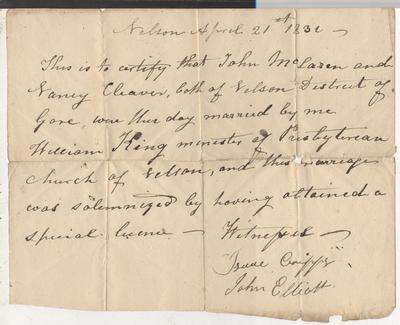 Nelson April 21st 1832
This is to certify that John McLaren and
Nancy Cleaver, both of Nelson District of
Gore, was this day married by me
William King minister of Presbyterian
Church of Nelson, and this marriage
was solemnized by having obtained a
special licence — Witnesses —
Isaac
John Elliott